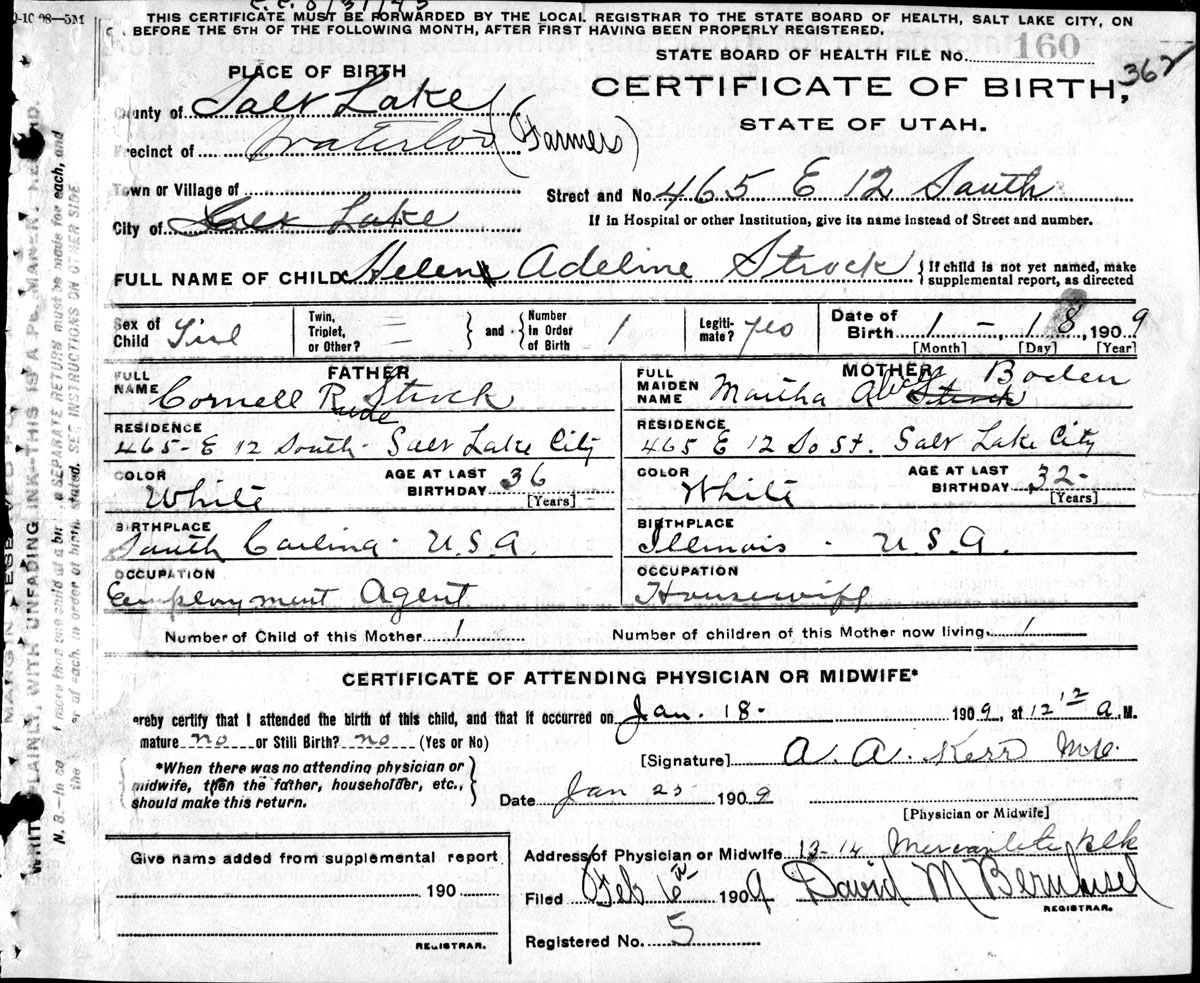 9-10 08—5M
THIS CERTIFICATE MUST BE FORWARDED BY THE LOCAL REGISTRAR TO THE STATE BOARD OF HEALTH, SALT LAKE CITY, ON
BEFORE THE 5TH OF THE FOLLOWING MONTH, AFTER FIRST HAVING BEEN PROPERLY REGISTERED.
STATE BOARD OF HEALTH FILE NO. 160
362
PLACE OF BIRTH
CERTIFICATE OF BIRTH,
STATE OF UTAH.
County of Salt Lake
Precinct of Waterloo (Farmers)
Town or Village of
Street and No. 465 E 12 South
City of Salt Lake
If in Hospital or other Institution, give its name instead of Street and number.
FULL NAME OF CHILD Helen Adeline Strock
{ If child is not yet named, make
supplemental report, as directed
Sex of Child Girl
Twin, Triplet, or Other? =
and
Number in Order of Birth 1
Legitimate? yes
Date of Birth 1 - 18 1909
[Month] [Day] [Year]
FATHER
FULL NAME Cornell Rude Strock
RESIDENCE
465- E 12 South- Salt Lake City
COLOR White
AGE AT LAST BIRTHDAY 36 [Years]
BIRTHPLACE
South Carlina - U.S.A.
OCCUPATION
Employment Agent
MOTHER
FULL MAIDEN NAME Martha Strock Boden
RESIDENCE
465 E 12 So St. Salt Lake City
COLOR White
AGE AT LAST BIRTHDAY 32- [Years]
BIRTHPLACE
Illinois - U.S.A.
OCCUPATION
Housewife
Number of Child of this Mother 1
Number of children of this Mother now living 1
CERTIFICATE OF ATTENDING PHYSICIAN OR MIDWIFE*
ereby certify that I attended the birth of this child, and that it occurred on Jan. 18- 1909, at 12 12 A.M.
mature no or Still Birth? no (Yes or No)
*When there was no attending physician or
midwife, then the father, householder, etc.,
should make this return.
[Signature] A. A. Kerr M.D.
Date Jan 25 1909
[Physician or Midwife]
Give name added from supplemental report
190
REGISTRAR.
Address of Physician or Midwife 13-14 Mercantile Blk
Filed Feb 6th 1909 David M Bernhisel
REGISTRAR.
Registered No. 5
WRITE PLAINLY, WITH UNFADING INK—THIS IS A
N. B.—In
more than one child at a
a SEPARATE RETURN must be made for each, and
the
of each, in order of birth, stated. SEE INSTRUCTIONS ON OTHER SIDE